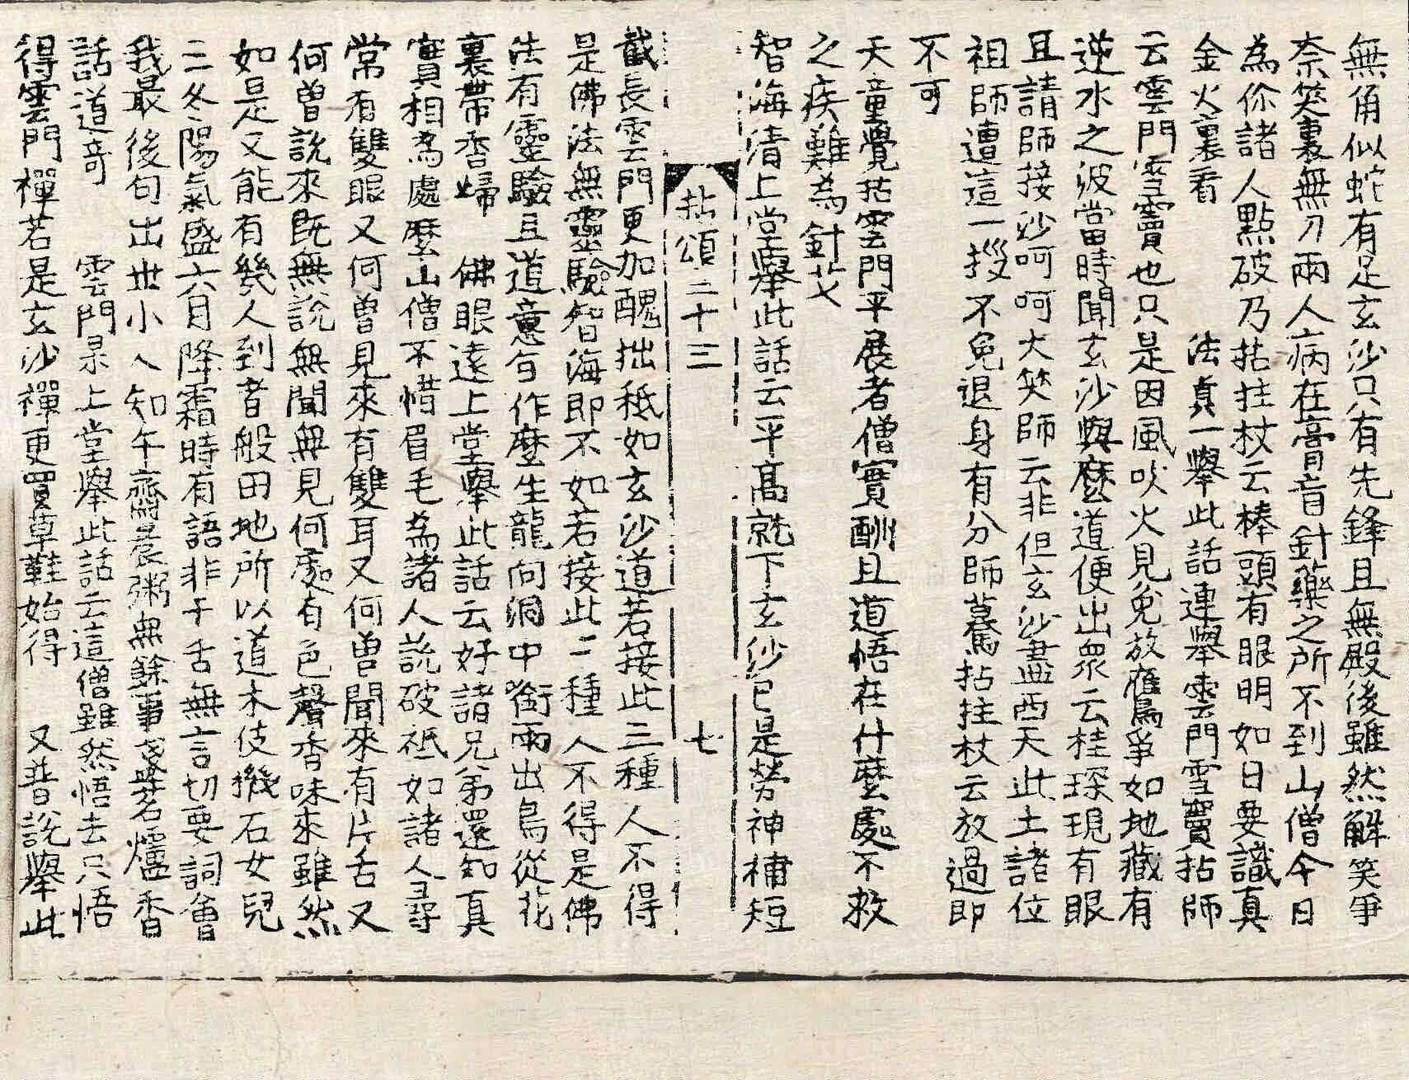 無角似蛇有足玄沙只有先鋒且無殿後雖然解笑爭
奈笑裏無刀兩人病在膏盲針藥之所不到山僧今日
為你諸人點破乃拈拄杖云棒頭有眼明如日要識真
金火裏看　法真一舉此話連舉雲門雪竇拈師
云雲門雪竇也只是因風吹火見兔放鷹爭如地藏有
逆水之波當時聞玄沙與麽道便出衆云桂琛現有眼
且請師接沙呵呵大笑師云非但玄沙盡西天此土諸位
祖師遭這一拶不免退身有分師驀拈拄杖云放過即
不可
天童覺拈雲門平展者僧實酬且道悟在什麽處不救
之疾難為針艾
智海清上堂舉此話云平高就下玄沙已是勞神補短
拈頌二十三　七
截長雲門更加醜拙秪如玄沙道若接此三種人不得
是佛法無靈驗智海即不如若接此二種人不得是佛
法有靈驗且道意旨作麽生龍向洞中銜雨出鳥從花
裏帶香歸　佛眼遠上堂舉此話云好諸兄弟還知真
實相為處麽山僧不惜眉毛為諸人說破秪如諸人尋
常有雙眼又何曾見來有雙耳又何曾聞來有片舌又
何曾說來既無說無聞無見何處有色聲香味來雖然
如是又能有幾人到者般田地所以道木伎機石女兒
二冬陽氣盛六月降霜時有語非干舌無言切要詞會
我最後句出世小人知午齋晨粥無餘事盞茗爐香
話道奇　雲門杲上堂舉此話云這僧雖然悟去只悟
得雲門禪若是玄沙禪更買草鞋始得　又普說舉此